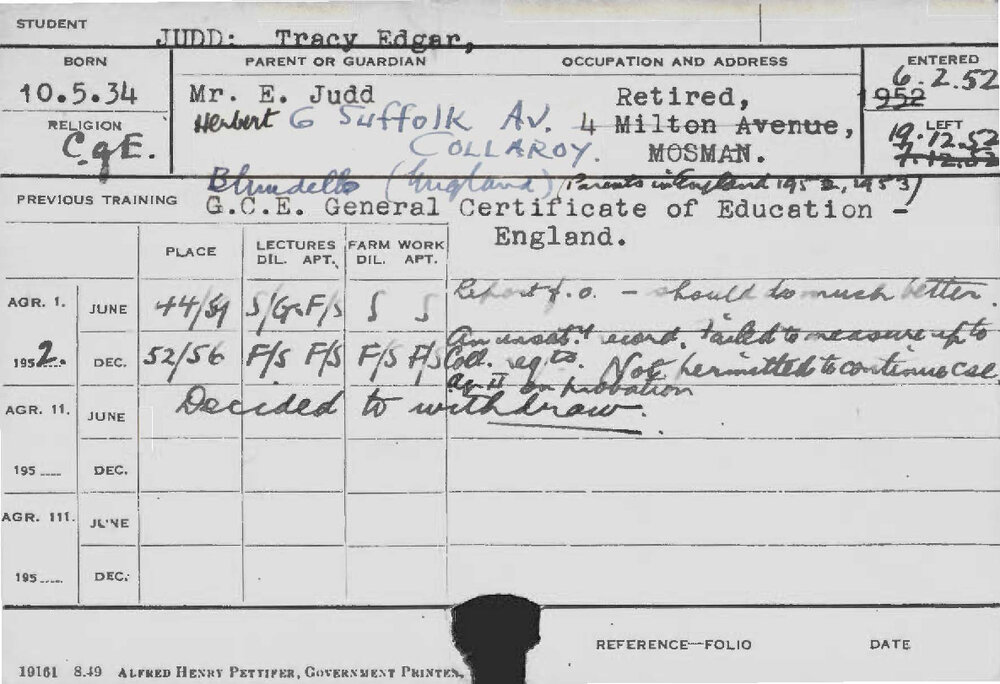 STUDENT
JUDD: Tracy Edgar,
BORN PARENT OR GUARDIAN OCCUPATION AND ADDRESS ENTERED
6.2.52
10.5.34 Mr. E. Judd Retired, 1952
RELIGION Herbert 6 Suffolk Av. 4 Milton Avenue, LEFT
19.12.52
C of E. COLLAROY. MOSMAN. 7.12.52
Blundells (England) (Parents in England 1952, 1953)
PREVIOUS TRAINING G.C.E. General Certificate of Education -
England.
PLACE LECTURES FARM WORK
DIL. APT. DIL. APT.
AGR. 1. JUNE 44/59 S/G F/S S S Report f.o. - should do much better.
An unsat. record, failed to measure up to
1952. DEC. 52/56 F/S F/S F/S F/S Coll. reqts. Not permitted to continue cse.
Ag II on probation
AGR. 11. JUNE Decided to withdraw.
195 DEC.
AGR. 111. JUNE
195 DEC.
REFERENCE—FOLIO DATE
19161 8.49 ALFRED HENRY PETTIFER, GOVERNMENT PRINTER,